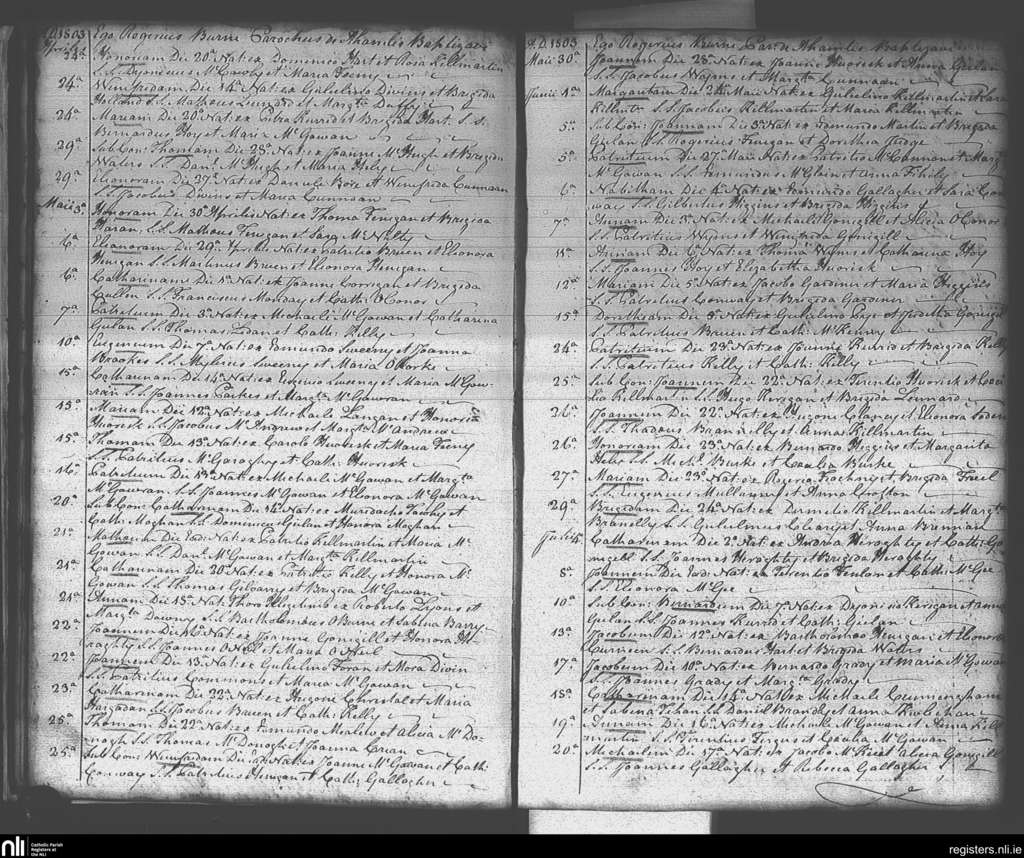 A.D. 1803 Ego Rogerius Burne Parochus de Ahamlis Baptizavi
Aprilis 24ª Honoriam Die 20ª Nat: ex Domenico Hart et Rosa Killmartin
S.S. Dyonisius McGowan et Maria Feeny
24ª Winifridam Die 14ª Nat: ex Gulielmo Divins et Brigida
Holland S.S. Matheus Leonard et Margta Duffy
24ª Mariam Die 20ª Nat: ex Petro Rurrid et Brigida Hart. S.S.
Bernardus Hoy et Maria McGowan
29ª Sub Con: Thomam Die 28ª Nat: ex Joanne McHugh et Brigida
Waters S.S. Danl McHugh et Maria Hely
29ª Elionoram Die 27ª Nat: ex Daniele Roix et Winifrida Cunnaan
S.S. Jacobus Divins et Maria Cunnaan
Maii 5ª Honoram Die 30ª Aprilis Nat: ex Thoma Finigan et Brigida
Haran S.S. Matheus Finigan et Sara McNulty
6ª Elionoram Die 29ª Aprilis Nat: ex Patritio Bruen et Elionora
Henigan S.S. Martinus Bruen et Elionora Henigan
6ª Catharinam Die 1ª Nat: ex Joanne Corrigan et Brigida
Cullen S.S. Franciscus Monday et Cath: O Conor
7ª Patritium Die 3ª Nat: ex Michaele McGowan et Catharina
Guilan S.S. Thomas Zoran et Cath: Killy
10ª Eugenium Die 7ª Nat: ex Edmundo Sweeny et Joanna
Brookes S.S. Mylesius Sweeny et Maria O Rorke
15ª Catharinam Die 14ª Nat: ex Eugenio Sweeny et Maria McGow-
ran S.S. Joannes Parkes et Margta McGowran
15ª Mariam Die 12ª Nat: ex Michaele Langan et Honoria
Huorisk S.S. Jacobus McAndrew et Margta McAndrew
15ª Thomam Die 13ª Nat: ex Carolo Huorisk et Maria Feeny
S.S. Patritius McGaraghry et Cath: Huorisk
16ª Patritium Die 13ª Nat: ex Michaele McGowan et Margta
McGowran S.S. Joannes McGowan et Elionora McGowan
20ª Sub Con: Catharinam Die 14ª Nat: ex Murdacho Toohy et
Cath: Moghan S.S. Dominicus Guilan et Honora Moghan
21ª Matheum Die Nat: ex Patritio Killmartin et Maria Mc
Gowan S.S. Danl McGowan et Margta Killmartin
21ª Catharinam Die 20ª Nat: ex Patritio Killy et Honora Mc
Gowan S.S. Thomas Giloarry et Brigida McGowan
21ª Annam Die 15ª Nat: ex Roberto Lyons et
Margta Downy S.S. Bartholomaeus O Burne et Sabina Barry
22ª Joannem Die Nat: ex Joanne Gonigill et Honora He-
raghty S.S. Joannes O Neil et Maria O Neil
22ª Joannem Die 15ª Nat: ex Gulielmo Foran et Nora Divin
S.S. Patritius Commons et Maria McGowan
23ª Catharinam Die 22ª Nat: ex Hugone Christal et Maria
Haregadan S.S. Jacobus Bruen et Cath: Kelly
25ª Thomam Die 22ª Nat: ex Edmundo Mealiv et Alicia McDo-
nogh S.S. Thomas McDonogh et Joanna Caran
25ª Sub Con: Winifridam Die Nat: ex Joanne McGowan et Cath:
Conway S.S. Patritius Finigan et Cath: Gallagher
A.D. 1803 Ego Rogerius Burne Par. de Ahamlis Baptizavi
Maii 30ª Joannem Die 28ª Nat: ex Joanne Huorisk et Anna Guilan
S.S. Jacobus Wayns et Margta Cunnaan
Junii 1ª Margaritam Die 24ª Maii Nat: ex Gulielmo Killmartin et Sara
Killbriter S.S. Jacobus Killmartin et Maria Killmartin
5ª Sub Con: Joannam Die 3ª Nat: ex Edmundo Martin et Brigida
Guilan S.S. Rogerius Finigan et Dorothia Judge
5ª Patritium Die 27ª Maii Nat: ex Patritio McCannan et Margta
McGowan S.S. Ferninandus McGlain et Anna Fihily
6ª Nabitham Die 4ª Nat: ex Ferninando Gallagher et Sara Con-
way S.S. Gilbertus Higgins et Brigida Higgins
7ª Annam Die 3ª Nat: ex Michaele Gonigill et Alicia O Conor
S.S. Patritius Wyns et Winifrida Gonigill
11ª Annam Die 6ª Nat: ex Thoma Wyns et Catharina Hoy
S.S. Joannes Hoy et Elizabetha Huorisk
12ª Mariam Die 5ª Nat: ex Jacobo Gardiner et Maria Higgins
S.S. Patritius Conway et Brigida Gardiner
15ª Dorothiam Die 3ª Nat: ex Gulielmo Cage et Juditha Gonigil
S.S. Patritius Bruen et Cath: McKenny
24ª Patritium Die 23ª Nat: ex Joanne Rurrid et Brigida Kelly
S.S. Patritius Killy et Cath: Killy
25ª Sub Con: Joannem Die 22ª Nat: ex Terentio Huorisk et Ceci-
lia Killmartin S.S. Hugo Kerrigan et Brigida Leonard
26ª Joannem Die 22ª Nat: ex Hugone Clancy et Elionora Soden
S.S. Thadaeus Brannelly et Anna Killmartin
26ª Honoriam Die 23ª Nat: ex Bernardo Higgins et Margarita
Helis S.S. Michl Burke et Cecilia Burke
27ª Mariam Die 23ª Nat: ex Rogerio Fiachny et Brigida Freel
S.S. Eugenius Mullanny et Anna Crofton
29ª Brigidam Die 24ª Nat: ex Dermitio Killmartin et Margta
Branelly S.S. Gulielmus Clancy et Anna Brannan
Julii 4ª Catharinam Die 2ª Nat: ex Andrea Hiraghty et Cath: Go-
nigill S.S. Joannes Hiraghty et Brigida Hiraghty
8ª Joannem Die Nat: ex Terentio Fenlon et Cath: McGee
S.S. Elionora McGee
10ª Sub Con: Bernardum Die 7ª Nat: ex Dyonisio Kerrigan et Anna
Guilan S.S. Joannes Rurrid et Cath: Guilan
13ª Jacobum Die 12ª Nat: ex Bartholomaeo Henigan et Honora
Curneen S.S. Bernardus Hart et Brigida Waters
17ª Jacobum Die 10ª Nat: ex Bernardo Grady et Maria McGowan
S.S. Joannes Grady et Margta Grady
18ª Catharinam Die 14ª Nat: ex Michaele Cunningham
et Sabina S.S. Daniel Brandly et Anna
19ª Annam Die 16ª Nat: ex Michaele McGowan et Anna Kill-
martin S.S. Florentius Fergus et Cecilia McGowan
20ª Michaelem Die 17ª Nat: ex Jacobo McKeet Alicia Gonigill
S.S. Joannes Gallagher et Rebecca Gallagher
nli Catholic Parish Registers at the NLI
registers.nli.ie